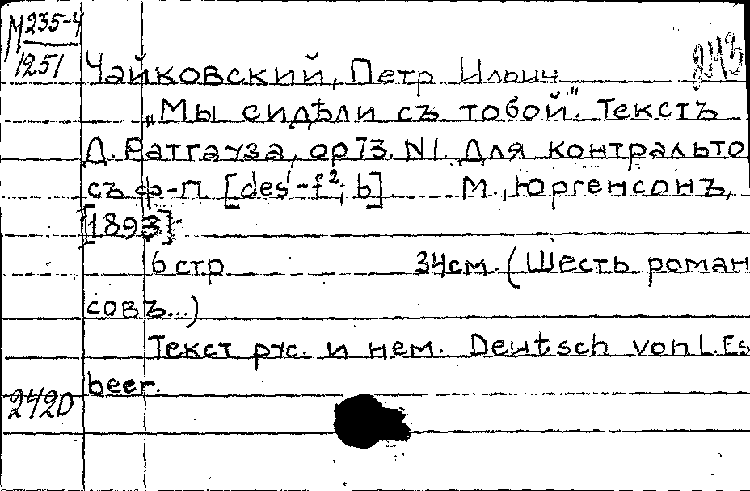 М 235-4
1251
243
Чайковский, Петр Ильич
„Мы сидѣли съ тобой". Текстъ
Д. Ратгауза, ор 73. N1. Для контральто
съ ф-п. [des¹-f²; b] М., Юргенсонъ,
[1893]
6 стр. 34см. (Шесть роман
совъ...)
Текст рус. и нем. Deutsch von L. Es
beer.
2420